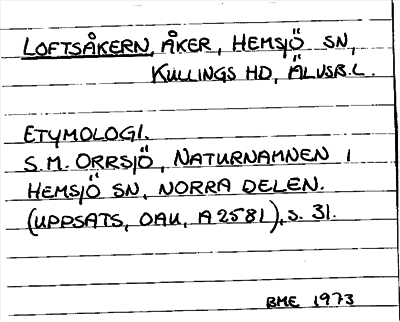 LOFTSÅKERN, ÅKER, HEMSJÖ SN,
KULLINGS HD, ÄLVSB.L.
ETYMOLOGI.
S.M. ORRSJÖ, NATURNAMNEN I
HEMSJÖ SN, NORRA DELEN.
(UPPSATS, OAU, A2581), S. 31.
BME 1973